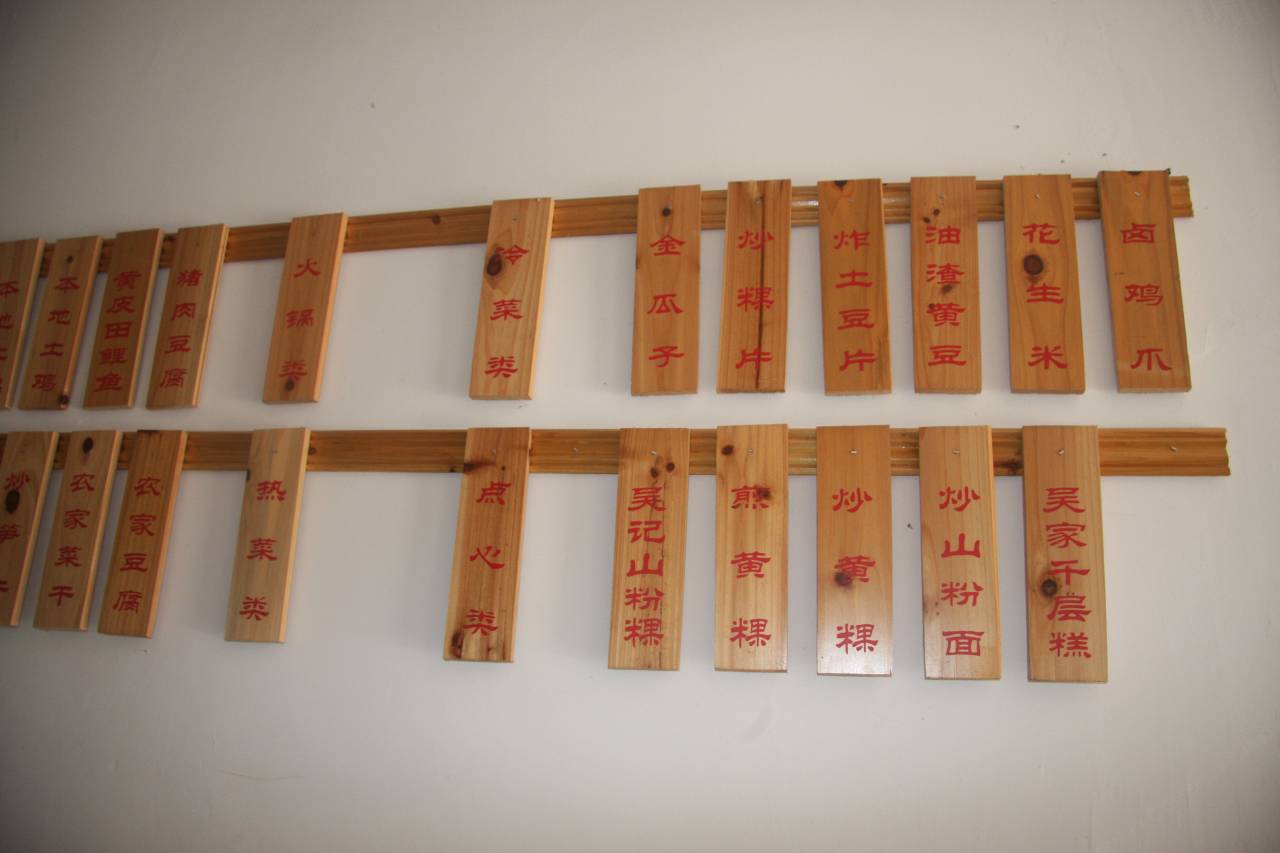 本地土鸡
黄皮田鲤鱼
猪肉豆腐
火锅类
冷菜类
金瓜子
炒粿片
炸土豆片
油渣黄豆
花生米
卤鸡爪
农家菜干
农家豆腐
热菜类
点心类
吴记山粉粿
煎黄粿
炒黄粿
炒山粉面
吴家千层糕